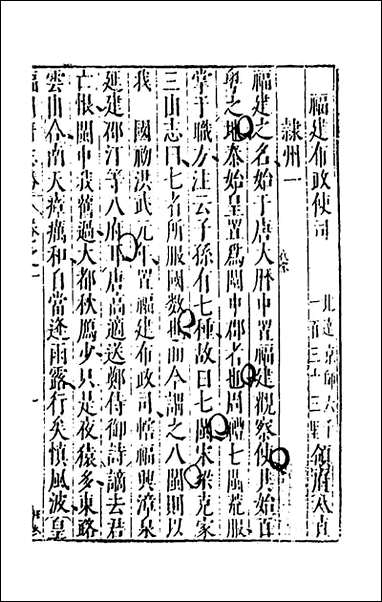 福建布政使司 北達京師六千一百三十三里 領府八直
隸州一
福建之名始于唐大曆中置福建觀察使其始百
粤之地秦始皇置爲閩中郡者也周禮七閩荒服
掌于職方注云子孫有七種故曰七閩宋梁克家
三山志曰七者所服國數也而今謂之八閩則以
我 國初洪武元年置福建布政司轄福興漳泉
延建邵汀等八府耳唐高適送鄭侍御詩謫去君
亡恨閩中我舊過大都秋鴈少只是夜猿多東路
雲山合南天瘴癘和自當逢雨露行矣慎風波皇